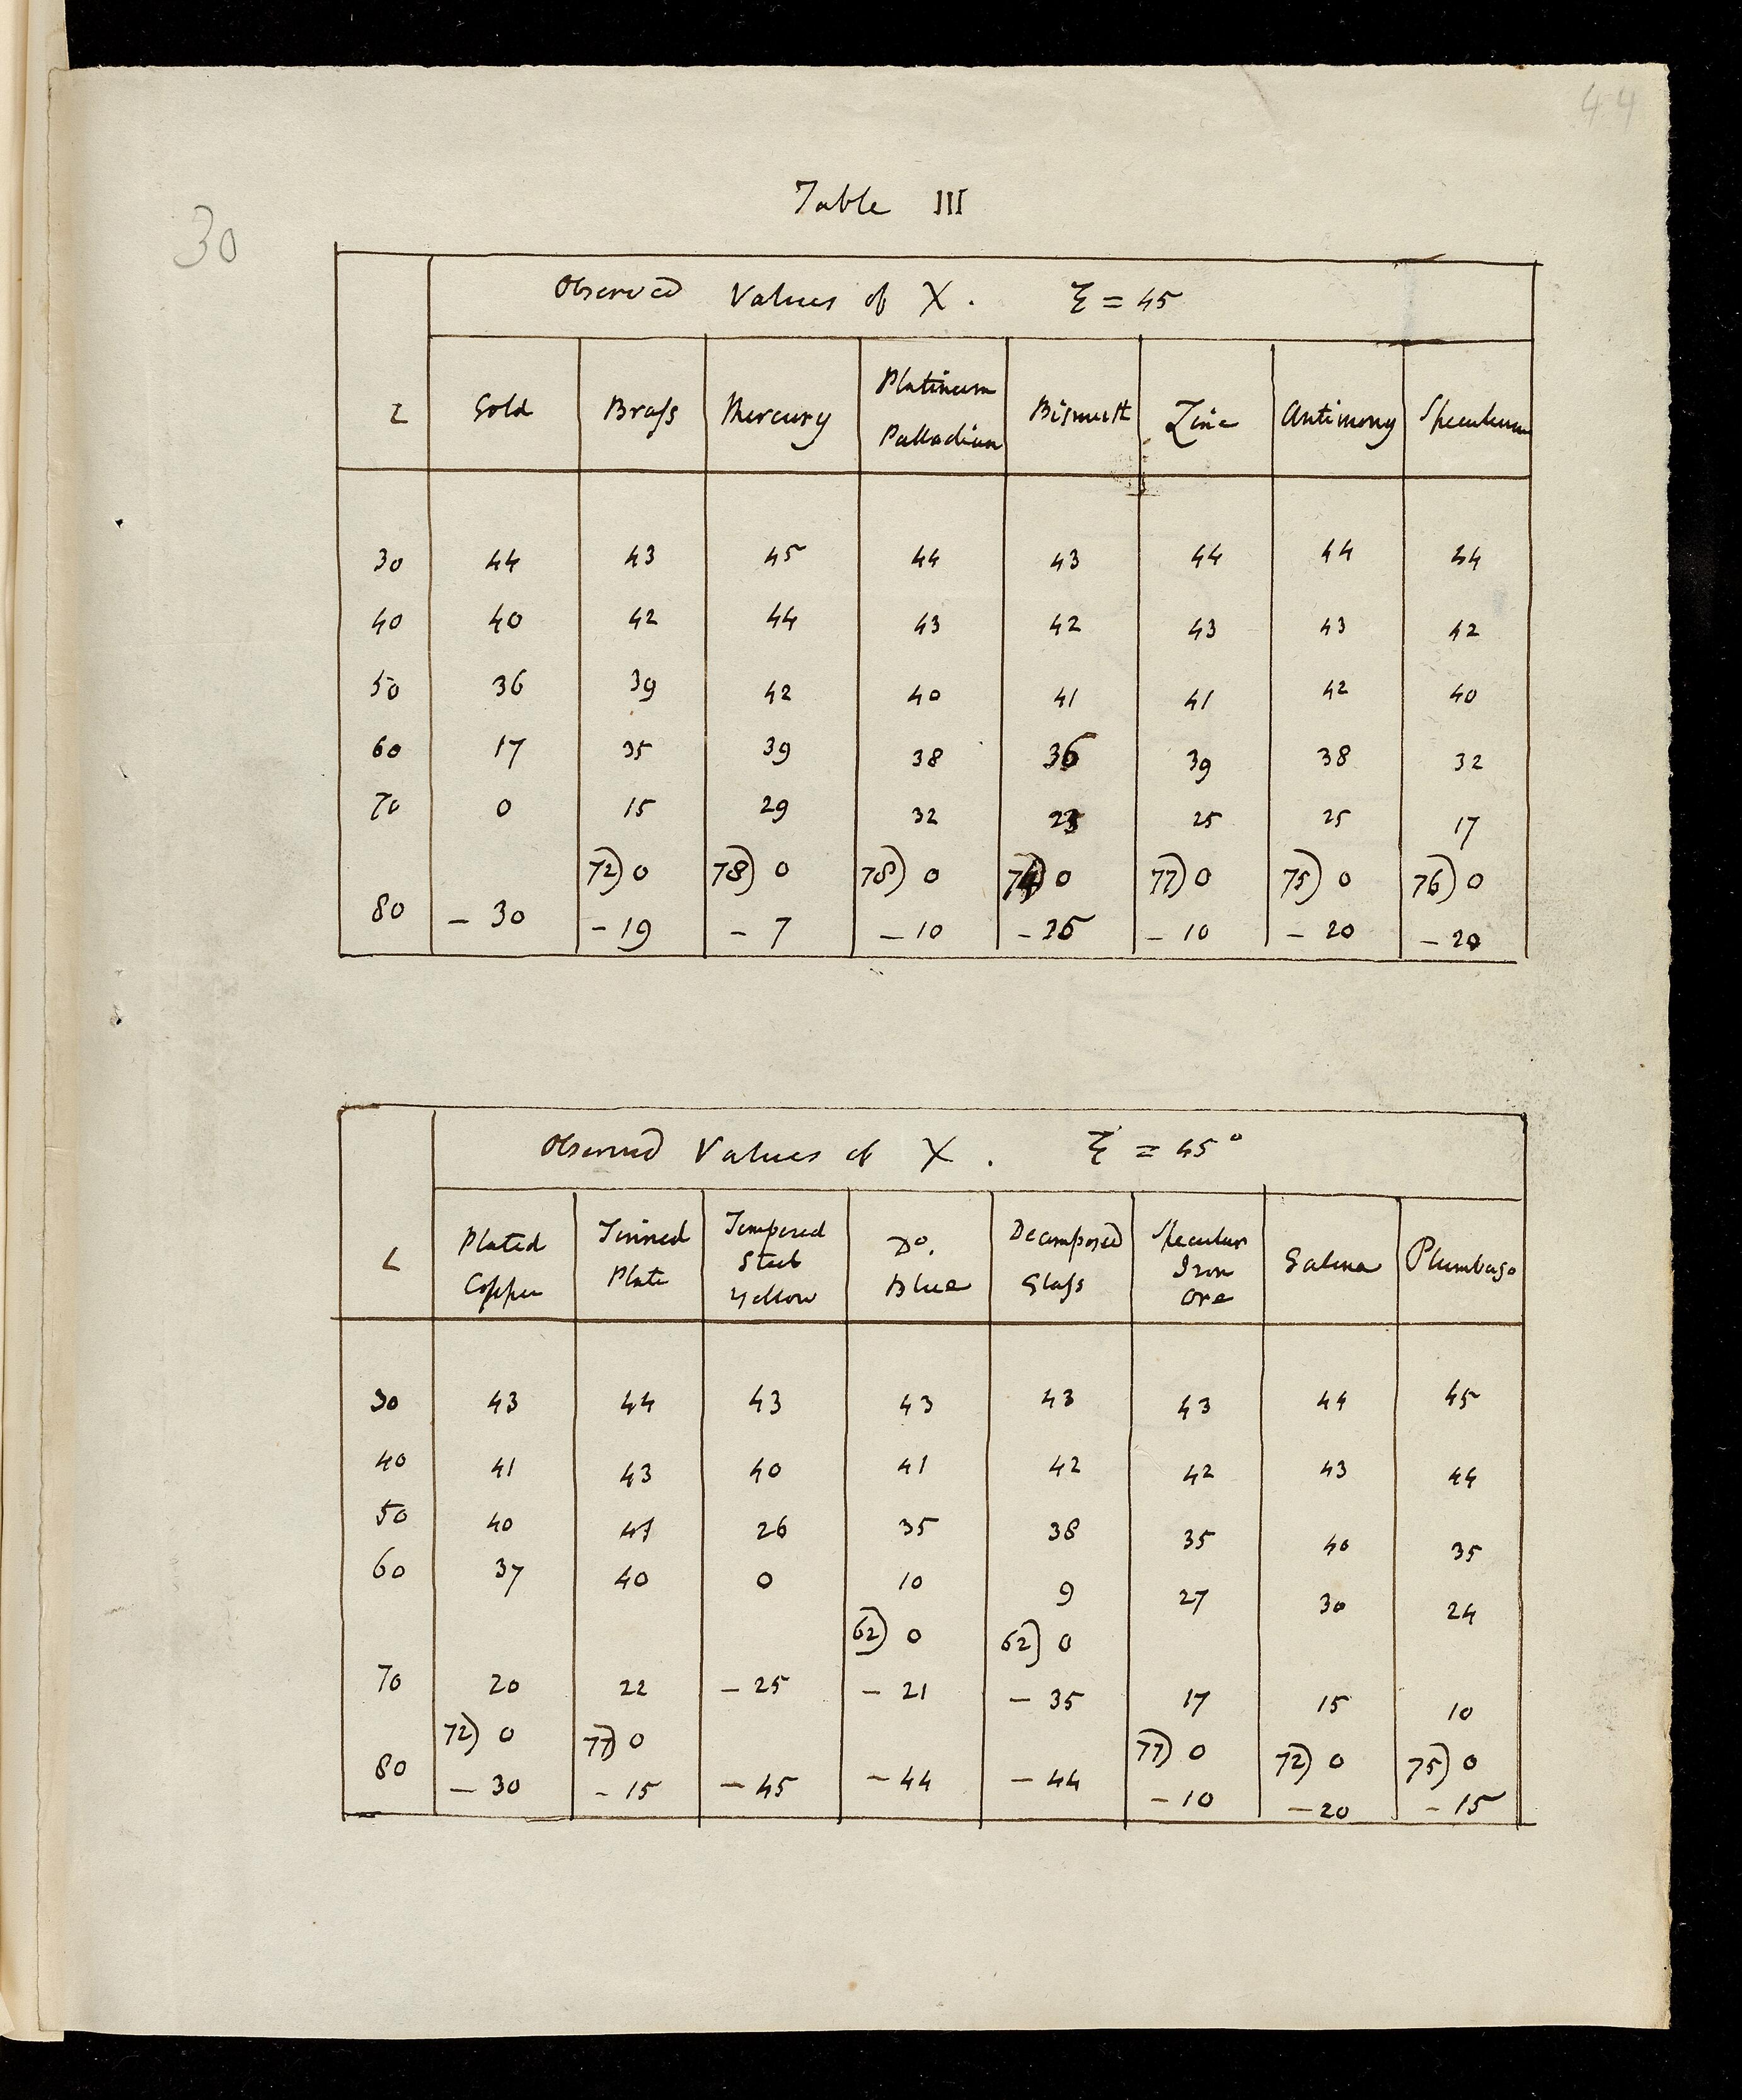 44
30
Table III
Observed Values of X. ξ = 45
ι Gold Brass Mercury Platinum Palladium Bismuth Zinc Antimony Speculum
30 44 43 45 44 43 44 44 44
40 40 42 44 43 42 43 43 42
50 36 39 42 40 41 41 42 40
60 17 35 39 38 36 39 38 32
70 0 15 29 32 25 25 17
72) 0 78) 0 78) 0 74) 0 77) 0 75) 0 76) 0
80 - 30 - 19 - 7 - 10 - 10 - 20 - 20
Observed Values of X. ξ = 45°
ι Plated Copper Tinned Plate Tempered Steel Yellow Do. Blue Decomposed Glass Specular Iron Ore Galena Plumbago
30 43 44 43 43 43 43 44 45
40 41 43 40 41 42 42 43 44
50 40 41 26 35 38 35 40 35
60 37 40 0 10 9 27 30 24
62) 0 62) 0
70 20 22 - 25 - 21 - 35 17 15 10
72) 0 77) 0 77) 0 72) 0 75) 0
80 - 30 - 15 - 45 - 44 - 44 - 10 - 20 - 15